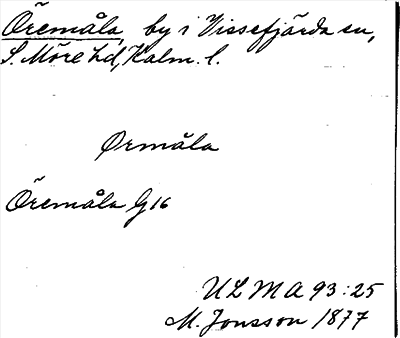 Öremåla, by i Vissefjärda sn,
S. Möre hd, Kalm. l.
Ørmåla
Öremåla G16
ULMA 93:25
M. Jonsson 1877